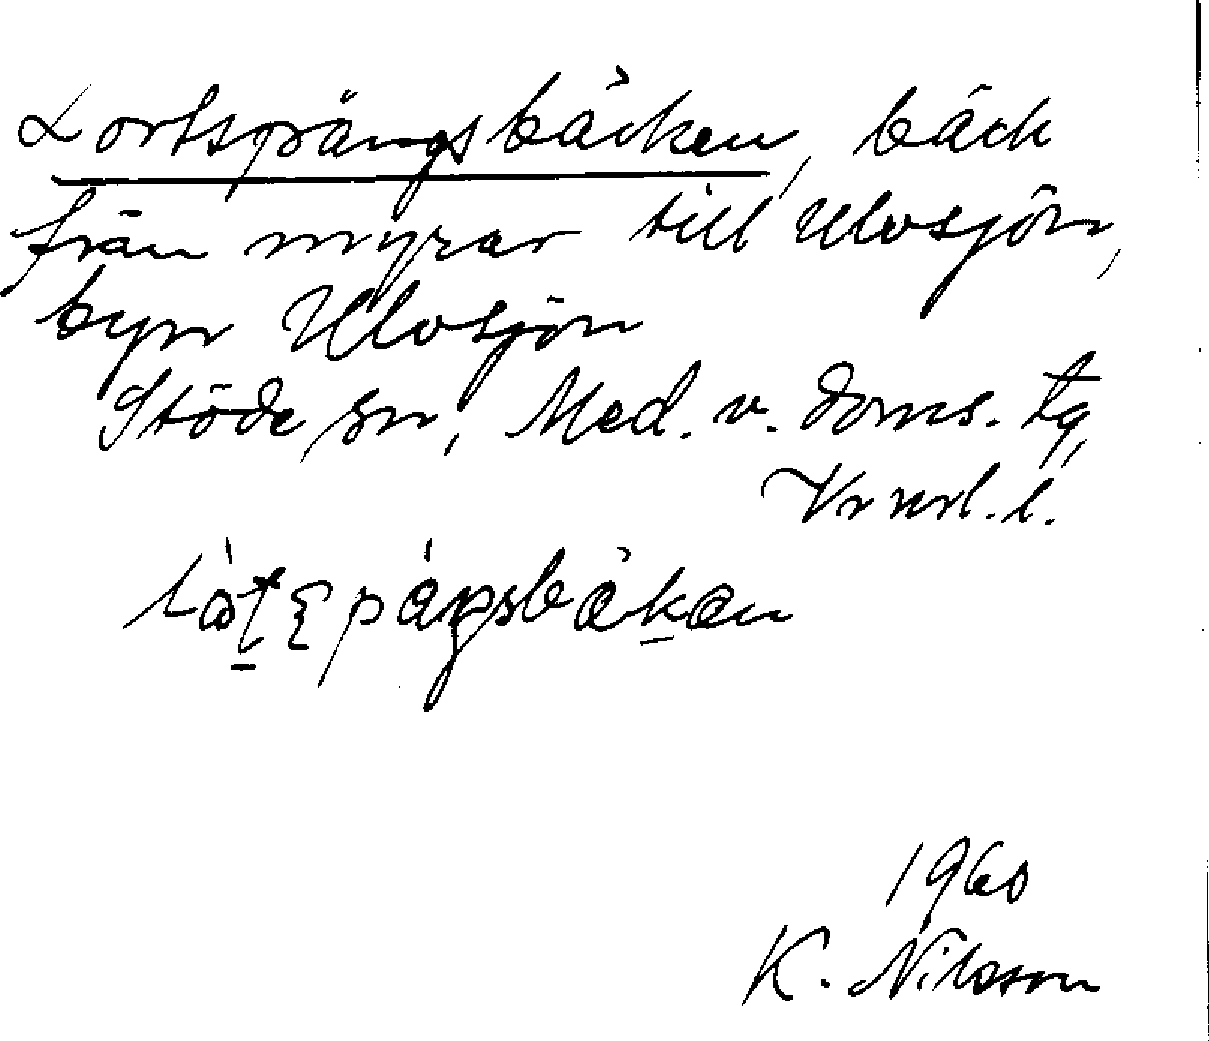 Lortspångsbäcken, bäck
från myrar till Ulvsjön,
byn Ulvsjön
Stöde sn, Med. v. doms. tg,
Vrnrl. l.
1960
K. Nilsson